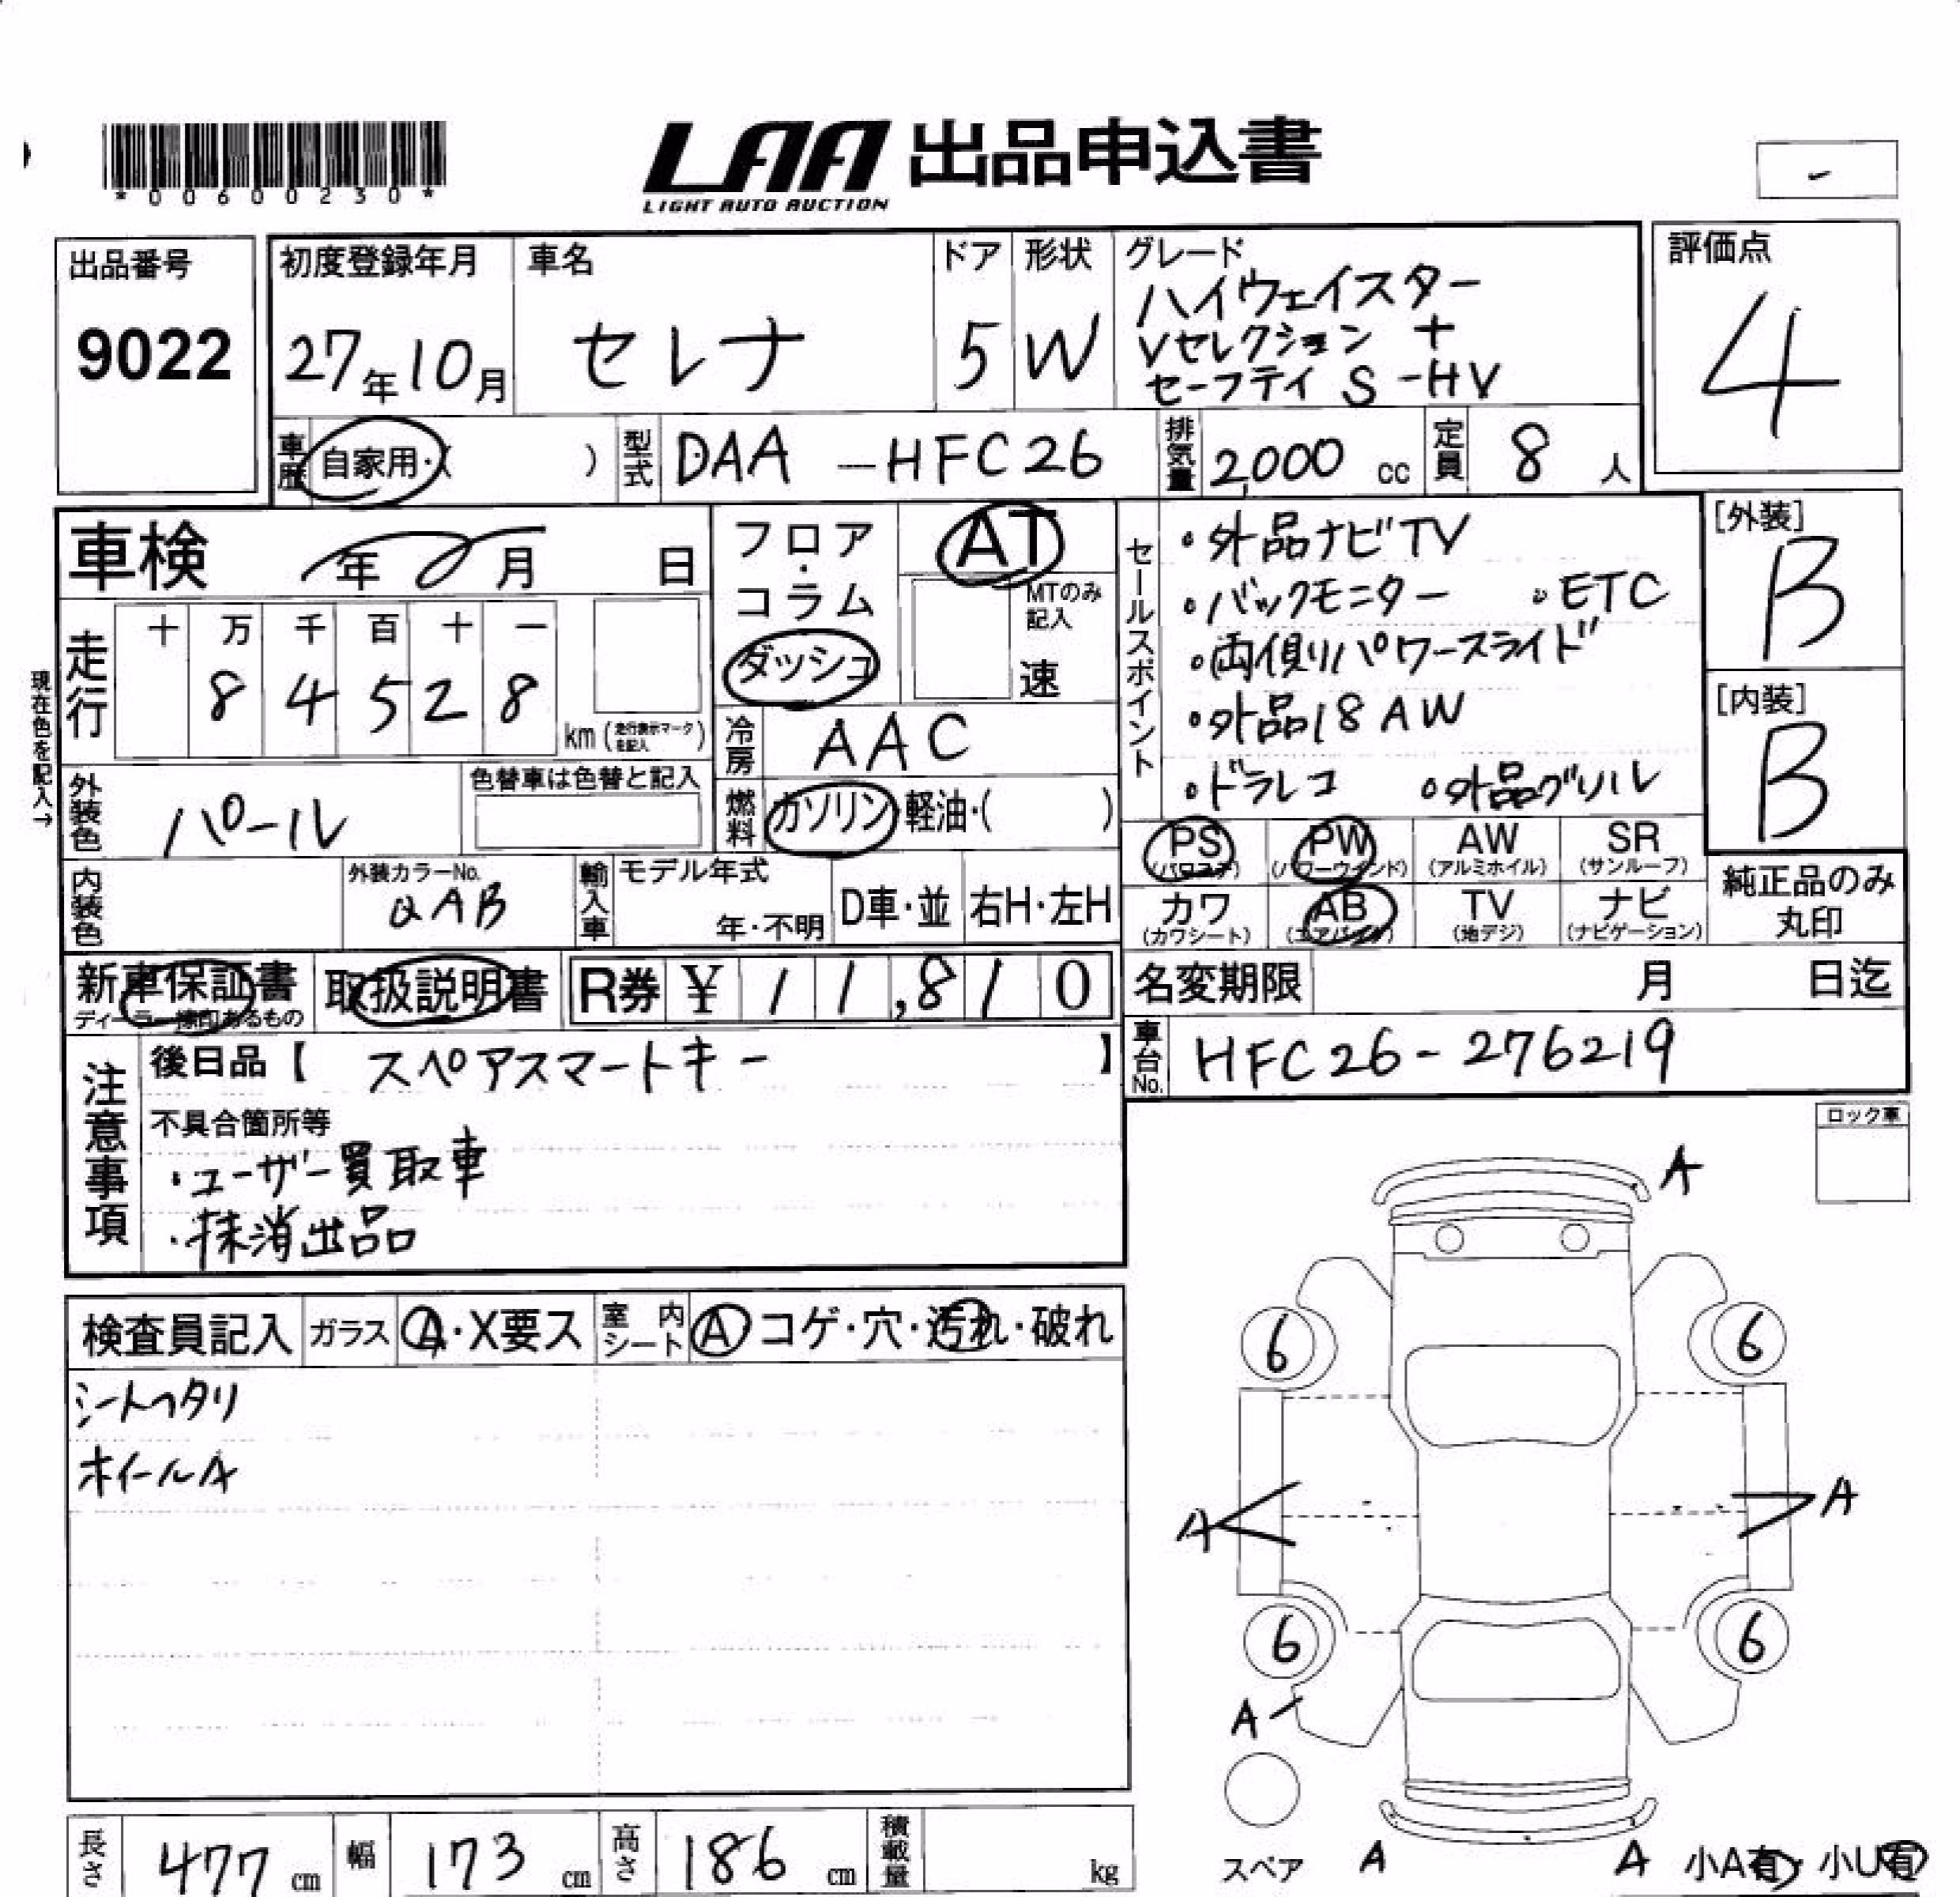 *00600230*
LAA 出品申込書
LIGHT AUTO AUCTION
-
出品番号
9022
初度登録年月
27年10月
車名
セレナ
ドア
5
形状
W
グレード
ハイウェイスター
Vセレクション +
セーフティ S-HV
評価点
4
車歴
自家用・( )
型式
DAA-HFC26
排気量
2,000 cc
定員
8 人
車検 年 月 日
現在色を記入→
走行
十 万 千 百 十 一
8 4 5 2 8
km (走行表示マークを記入)
フロア・コラム
ダッシュ
AT
MTのみ記入
速
冷房
AAC
燃料
ガソリン・軽油・( )
外装色
パール
色替車は色替と記入
内装色
外装カラーNo.
QAB
輸入車
モデル年式
年・不明
D車・並
右H・左H
セールスポイント
・外品ナビTV
・バックモニター ・ETC
・両側パワースライド
・外品18AW
・ドラレコ ・外品グリル
[外装]
B
[内装]
B
PS (パワステ)
PW (パワーウインド)
AW (アルミホイル)
SR (サンルーフ)
カワ (カワシート)
AB (エアバッグ)
TV (地デジ)
ナビ (ナビゲーション)
純正品のみ
丸印
新車保証書
ディーラー捺印あるもの
取扱説明書
R券 ¥ 11,810
名変期限 月 日迄
車台No.
HFC26-276219
注意事項
後日品【 スペアスマートキー 】
不具合箇所等
・ユーザー買取車
・抹消出品
ロック車
検査員記入
ガラス A・X要ス
室内シート A コゲ・穴・汚れ・破れ
シートヘタリ
ホイールA
A
6 6
A A
6 6
A
スペア
A A
小A有・小U有
長さ 477 cm
幅 173 cm
高さ 186 cm
積載量 kg